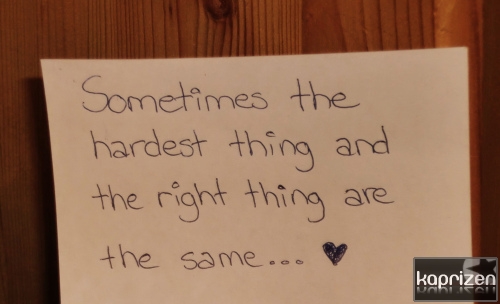 Sometimes the
hardest thing and
the right thing are
the same... ♥
kaprizen